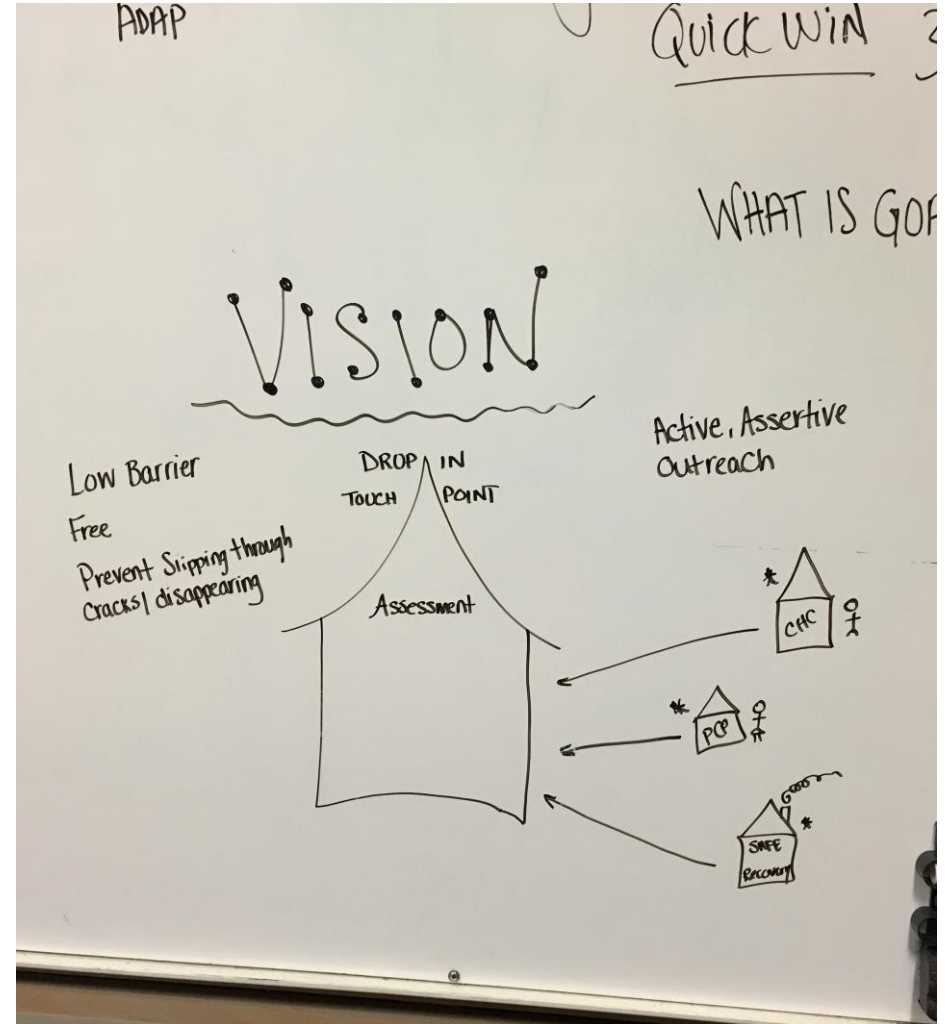 ADAP
QUICK WIN
WHAT IS GOA
VISION
Low Barrier
Free
Prevent Slipping through
cracks/disappearing
DROP IN
TOUCH POINT
Assessment
Active, Assertive
Outreach
* CHC
* PCP
SAFE *
RECOVERY